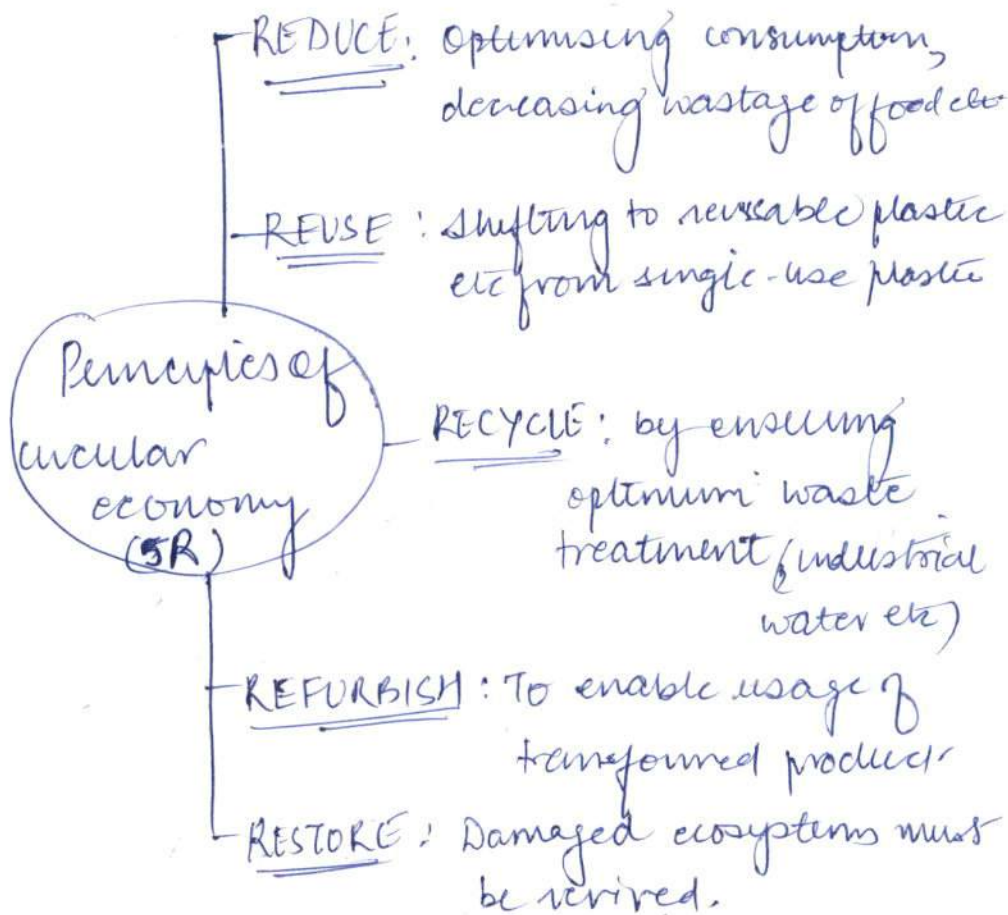 REDUCE: Optimising consumption,
decreasing wastage of food etc
REUSE: Shifting to reusable plastic
etc from single-use plastic
Principles of
circular
economy
(5R)
RECYCLE: by ensuring
optimum waste
treatment (industrial
water etc)
REFURBISH: To enable usage of
transformed product.
RESTORE: Damaged ecosystems must
be revived.